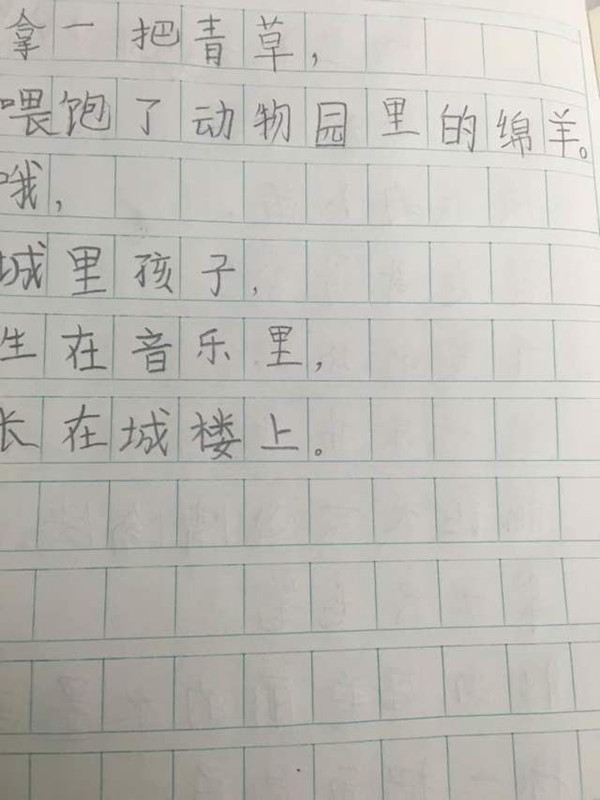 拿一把青草，
喂饱了动物园里的绵羊。
哦，
城里孩子，
生在音乐里，
长在城楼上。